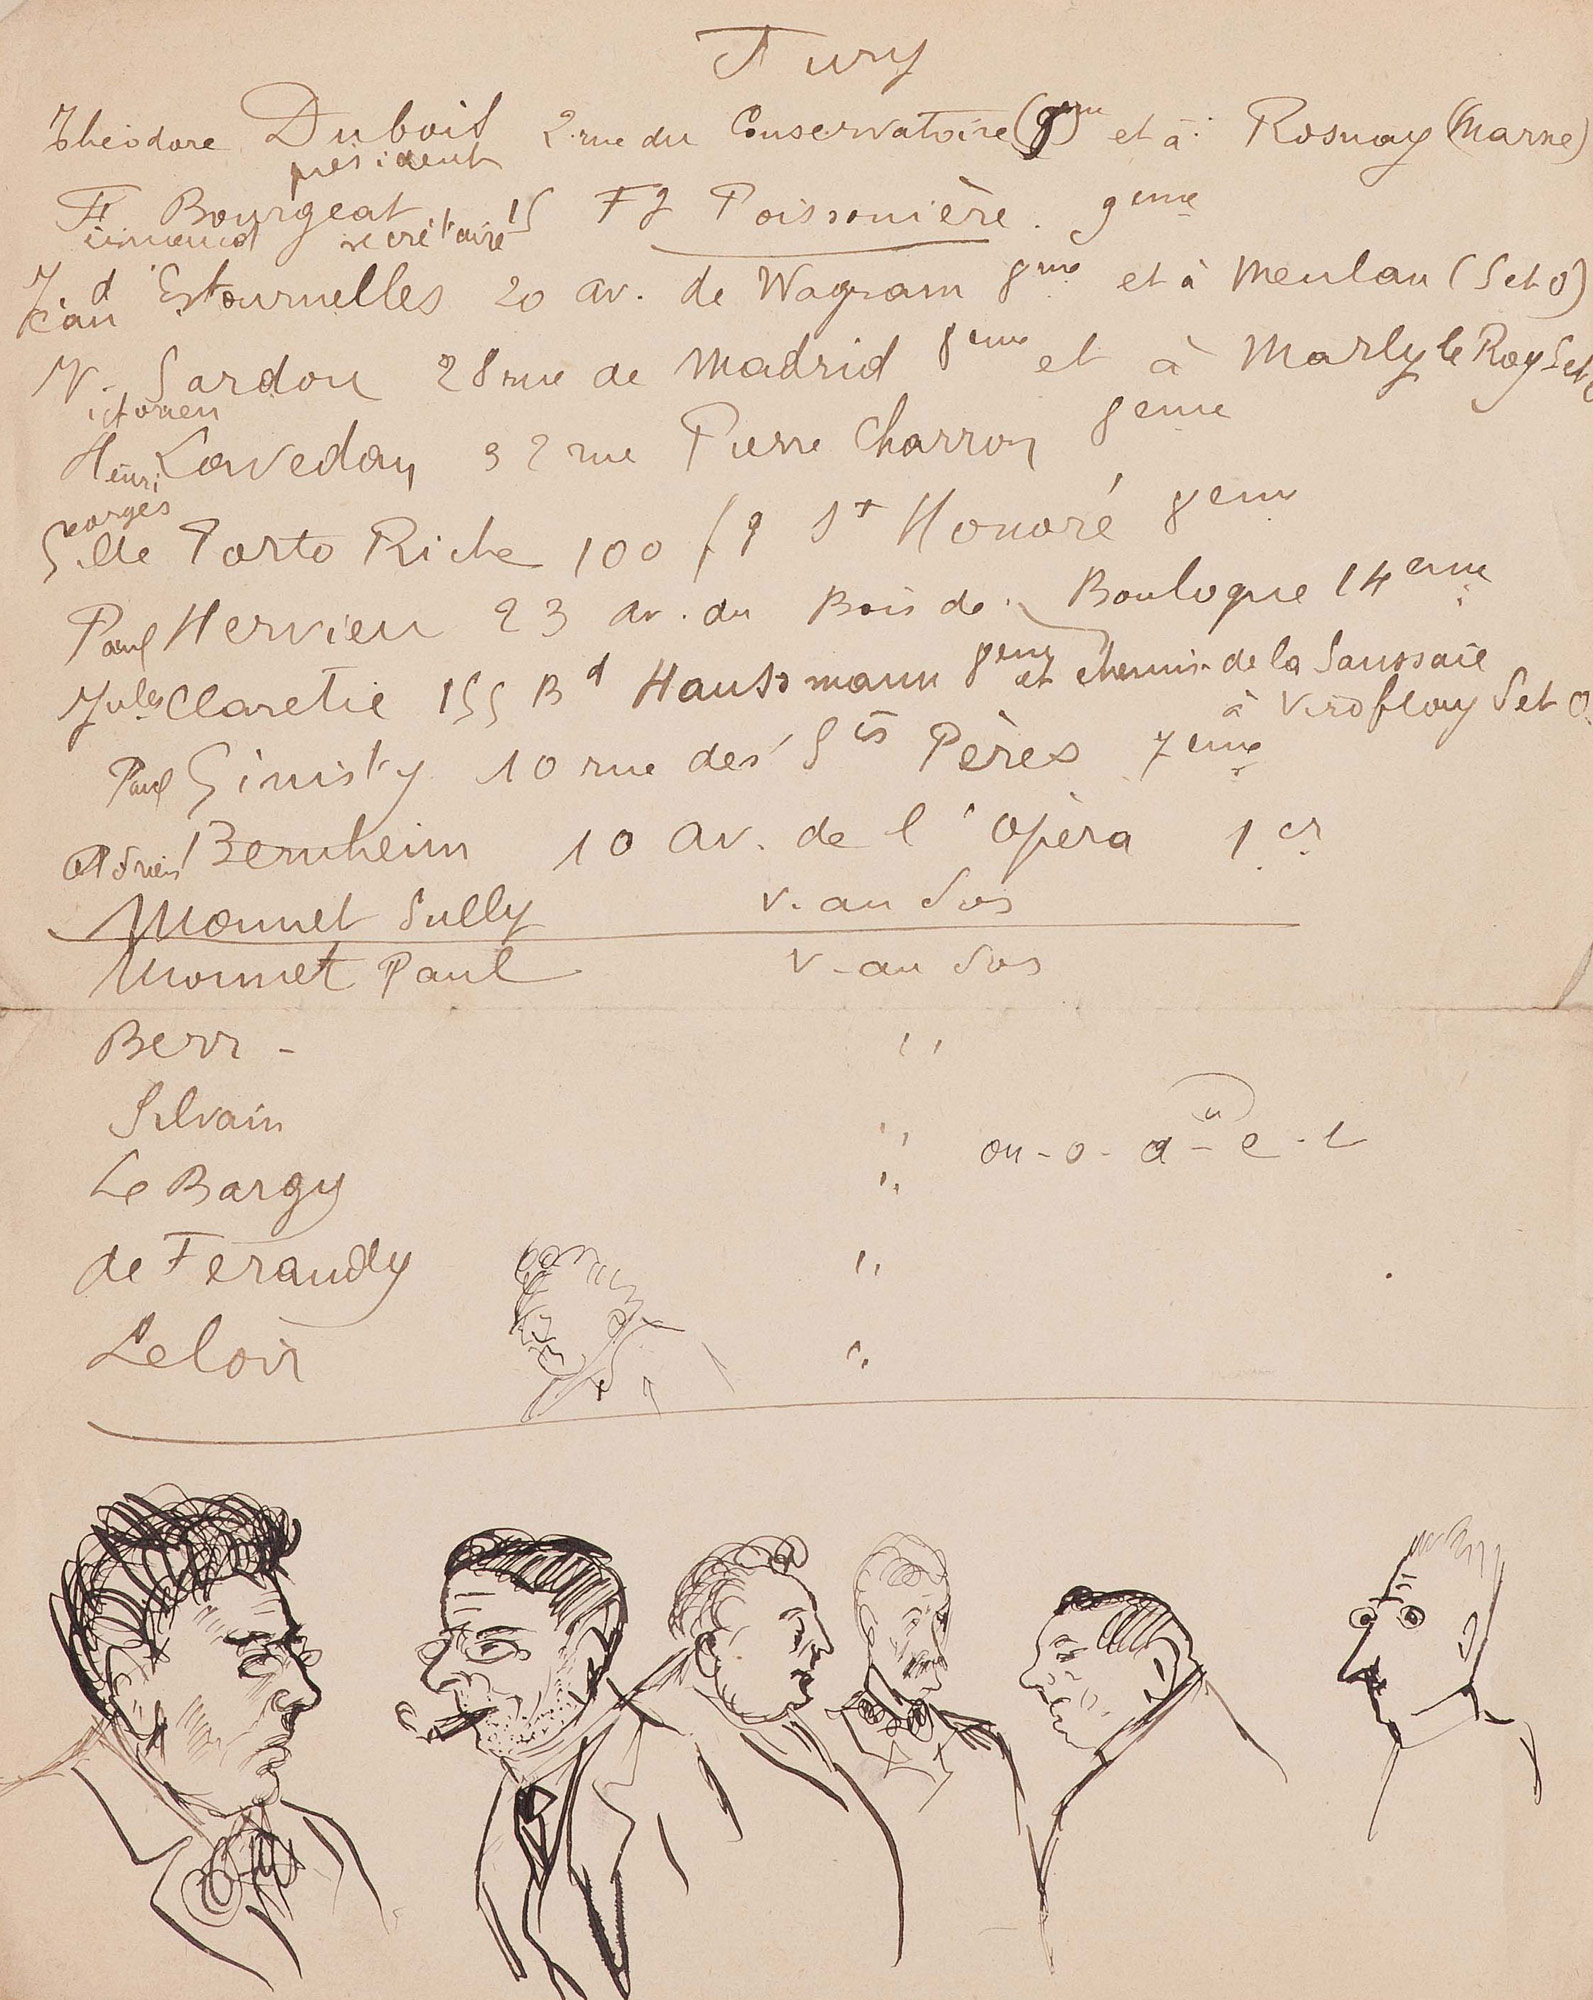 Jury
Théodore Dubois 2 rue du Conservatoire (9)eme et à Rosnay (Marne)
président
F Bourgeat 15 Fg Poissonière. 9eme
ernand secrétaire
J. d'Estournelles 20 av. de Wagram 8eme et à Meulan (S et O)
ean
V. Sardou 28 rue de Madrid 8eme et à Marly le Roy S et O
ictorien
Henri Lavedan 32 rue Pierre Charron 8eme
eorges
G. de Porto Riche 100 fg St Honoré 8eme
Paul Hervieu 23 av. du Bois de Boulogne 14eme
Jules Claretie 155 Bd Haussmann 8eme et chemin de la Saussaie
à Viroflay S et O.
Paul Ginisty 10 rue des Sts Pères 7eme
Adrien Bernheim 10 av. de l'Opéra 1er
Mounet Sully v. au dos
Mounet Paul v. au dos
Berr - "
Silvain " ou - o - a - e - i
u
Le Bargy "
de Feraudy "
Leloir "